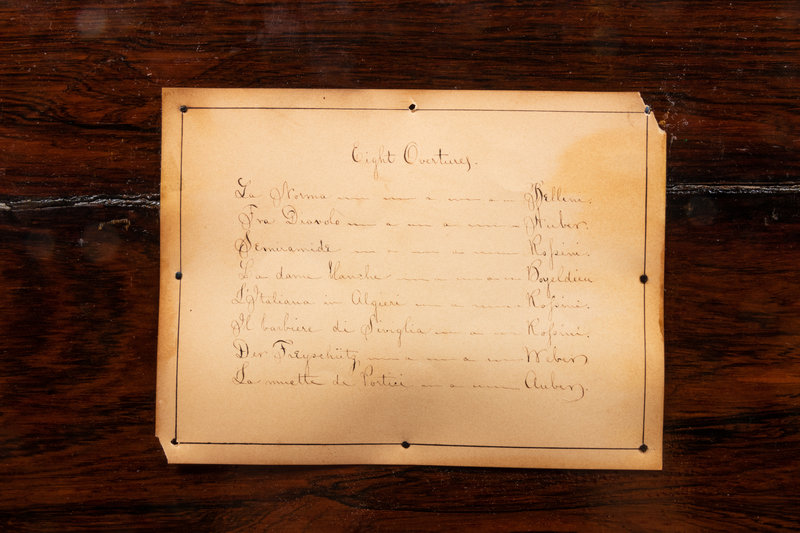 Eight Overtures.
La Norma Bellini.
Fra Diavolo Auber.
Semiramide Rossini.
La dame blanche Boyeldieu
L'Italiana in Algieri Rossini.
Il barbiere di Siviglia Rossini.
Der Freyschütz Weber
La muette de Portici Auber.